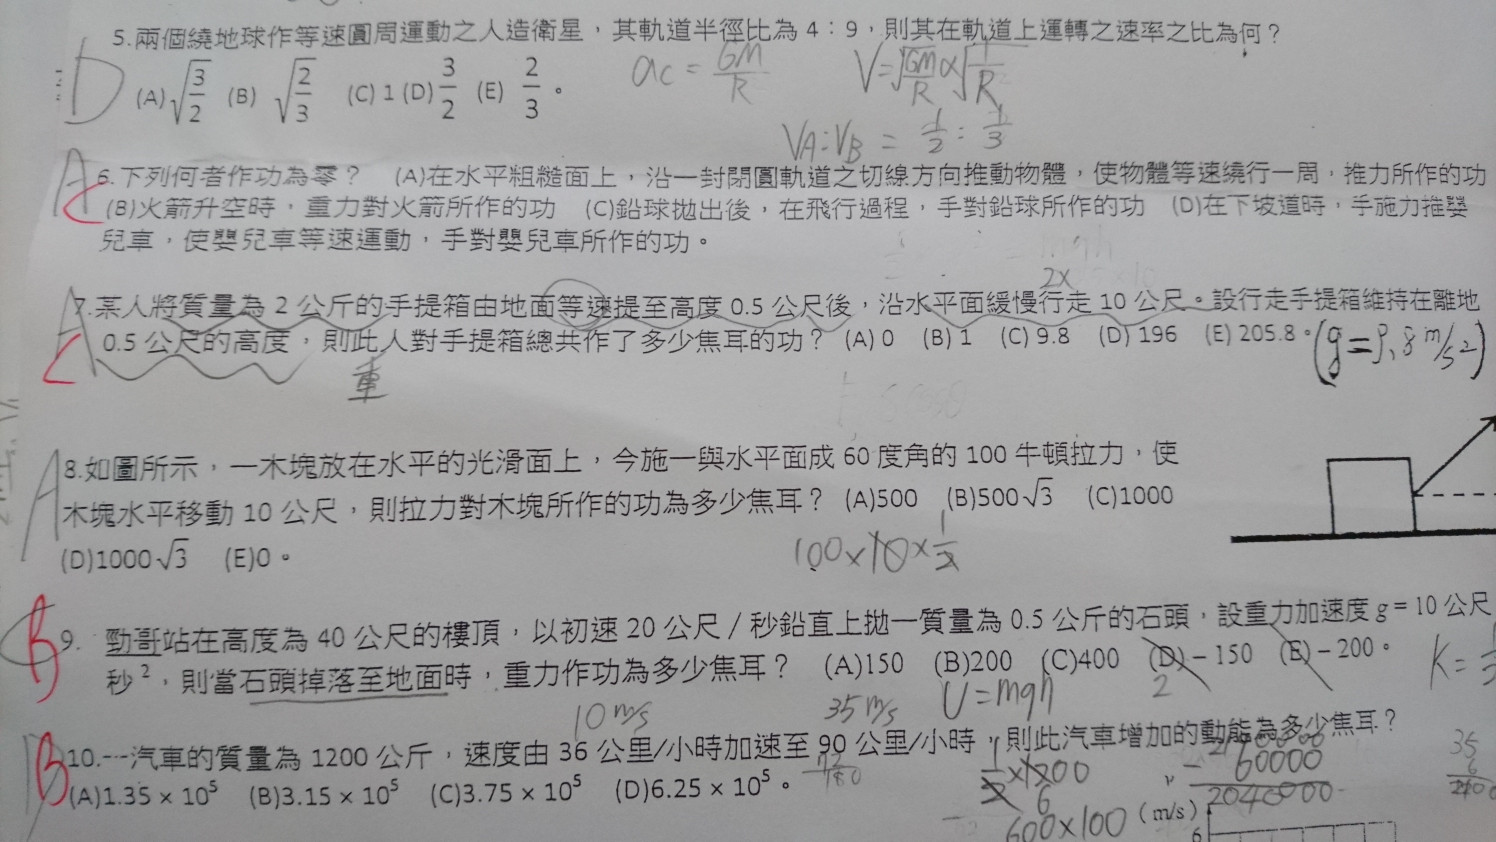 D 5.兩個繞地球作等速圓周運動之人造衛星，其軌道半徑比為 4：9，則其在軌道上運轉之速率之比為何？
(A)√3/2 (B) √2/3 (C) 1 (D) 3/2 (E) 2/3 。
ac = GM/R V=√GM/R ∝ √1/R
VA:VB = 1/2 : 1/3
A C 6.下列何者作功為零？ (A)在水平粗糙面上，沿一封閉圓軌道之切線方向推動物體，使物體等速繞行一周，推力所作的功
(B)火箭升空時，重力對火箭所作的功 (C)鉛球拋出後，在飛行過程，手對鉛球所作的功 (D)在下坡道時，手施力推嬰
兒車，使嬰兒車等速運動，手對嬰兒車所作的功。
mgh
2x
A C 7.某人將質量為 2 公斤的手提箱由地面等速提至高度 0.5 公尺後，沿水平面緩慢行走 10 公尺。設行走手提箱維持在離地
0.5 公尺的高度，則此人對手提箱總共作了多少焦耳的功？ (A) 0 (B) 1 (C) 9.8 (D) 196 (E) 205.8。(g=9.8 m/s2)
重
A 8.如圖所示，一木塊放在水平的光滑面上，今施一與水平面成 60 度角的 100 牛頓拉力，使
木塊水平移動 10 公尺，則拉力對木塊所作的功為多少焦耳？ (A)500 (B)500√3 (C)1000
(D)1000√3 (E)0。
100×10×1/2
B 9. 勁哥站在高度為 40 公尺的樓頂，以初速 20 公尺／秒鉛直上拋一質量為 0.5 公斤的石頭，設重力加速度 g = 10 公尺
秒²，則當石頭掉落至地面時，重力作功為多少焦耳？ (A)150 (B)200 (C)400 (D)－150 (E)－200。
K=
U=mgh
2
10 m/s 35 m/s
B 10.一汽車的質量為 1200 公斤，速度由 36 公里/小時加速至 90 公里/小時，則此汽車增加的動能為多少焦耳？
(A)1.35 × 10⁵ (B)3.15 × 10⁵ (C)3.75 × 10⁵ (D)6.25 × 10⁵。
72
180
1/2×1200
6
600×100
- 60000
2040000
35
6
(m/s)
6